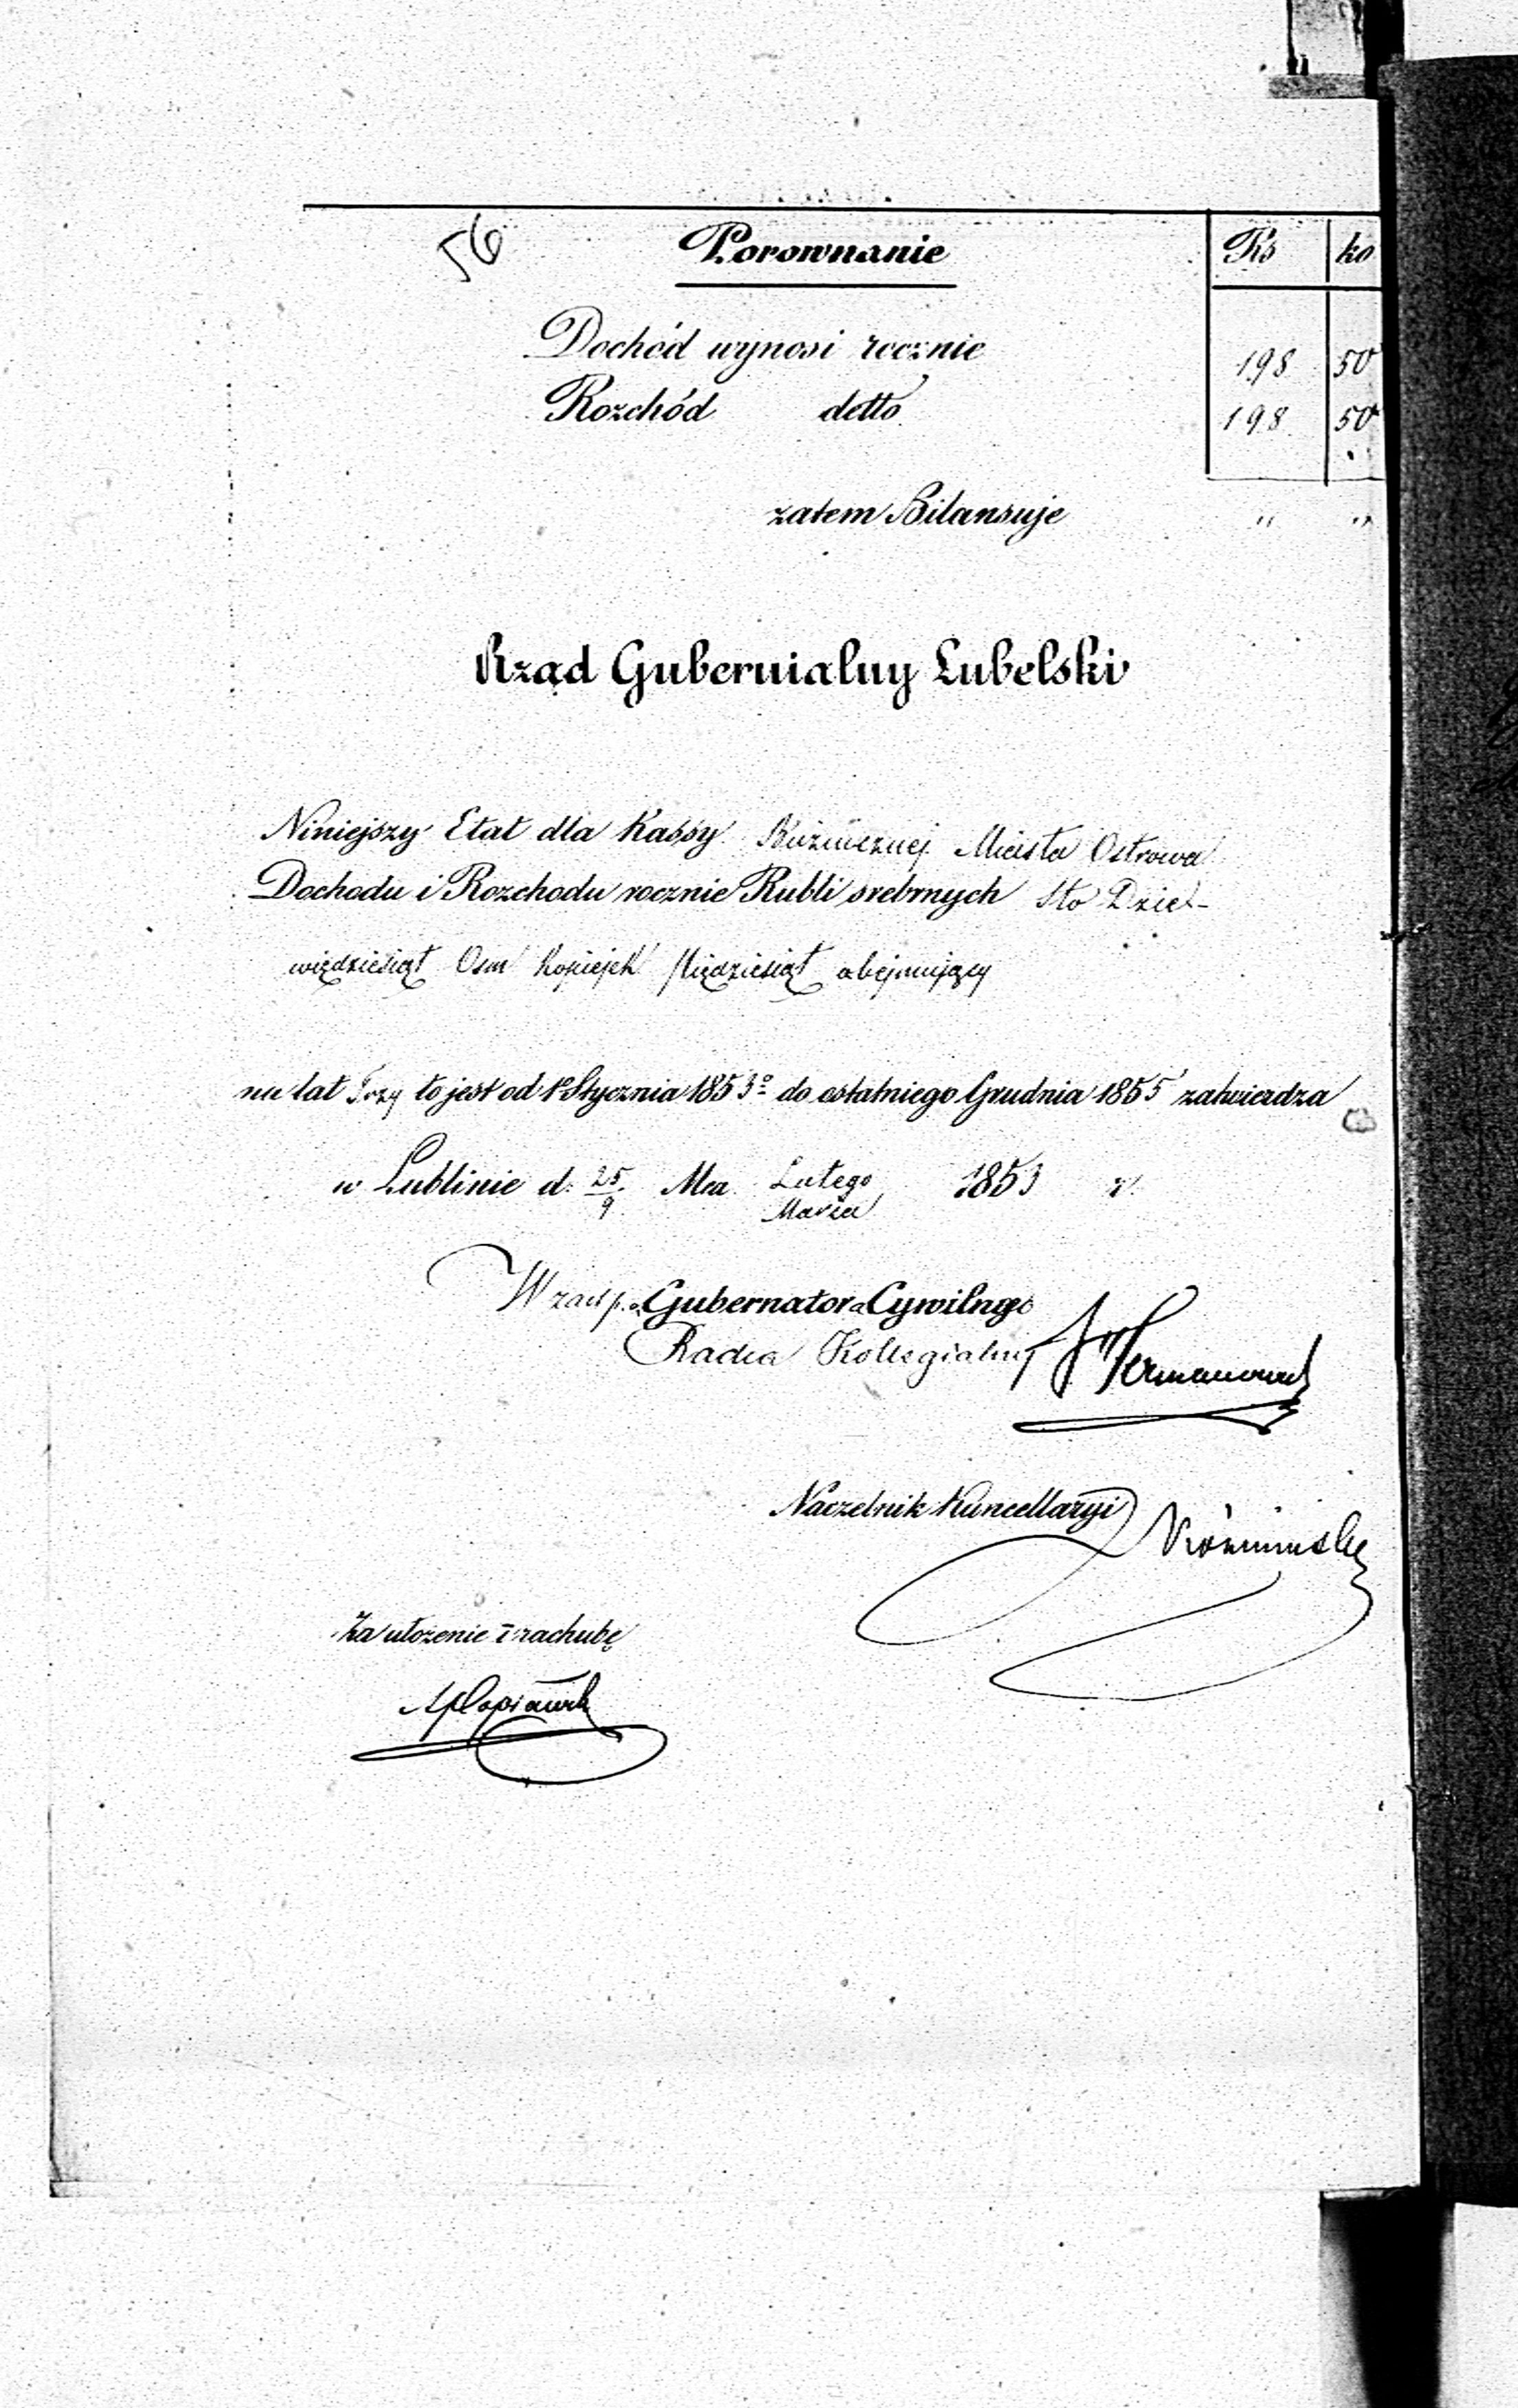 56
Porownanie Rs ko
Dochód wynosi rocznie 198 50
Rozchód detto 198 50
zatem Bilansuje " "
Rząd Gubernialny Lubelski
Niniejszy Etat dla Kassy Bużniczney Miasta Ostrowa
Dochodu i Rozchodu rocznie Rubli srebrnych Sto Dzie-
więdziesiąt Osm kopiejek pięździesiąt obejmujący
na lat Trzy to jest od 1º Stycznia 1853º do ostatniego Grudnia 1855 zatwierdza
w Lublinie d. 25/9 Mca Lutego/Marca 1853 r.
W zastp. Gubernatora Cywilnego
Radca Kollegialny
Naczelnik Kancellaryi
Za ułożenie i rachubę